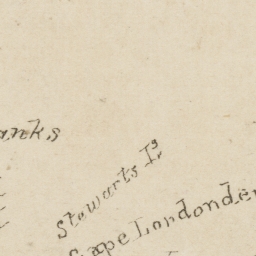 anks
Stewarts Is
Cape Londonde